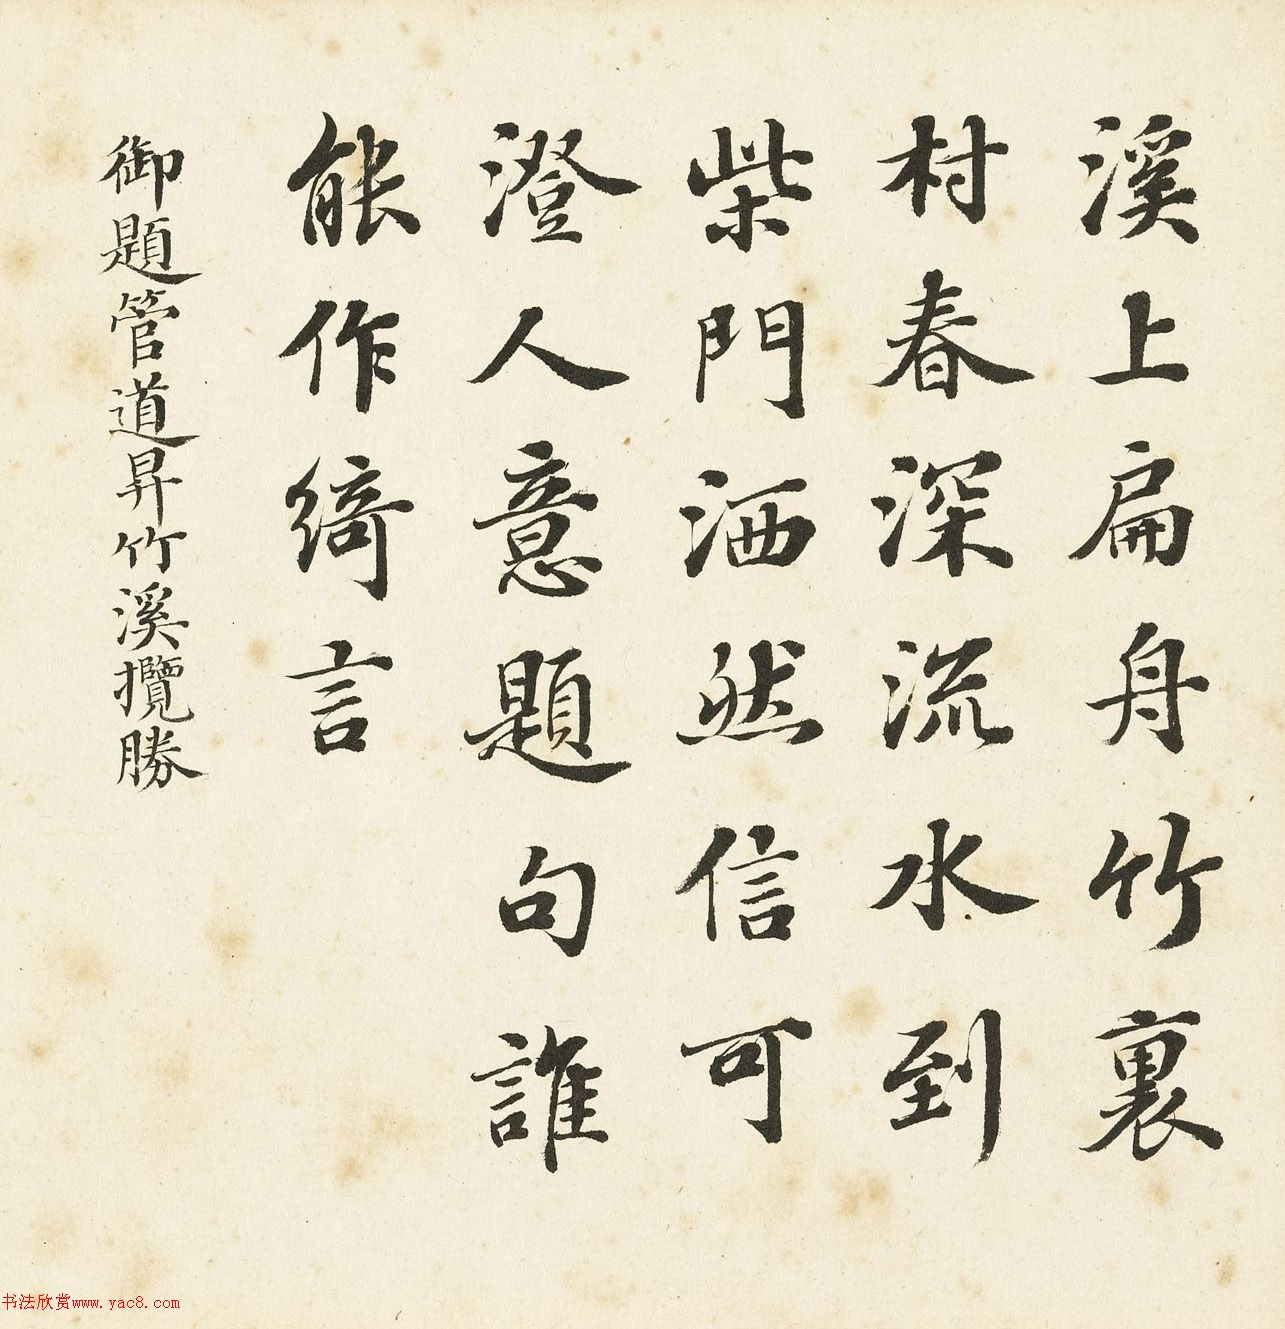 溪上扁舟竹裏
村春深流水到
柴門洒然信可
澄人意題句誰
能作綺言
御題管道昇竹溪攬勝
书法欣赏www.yac8.com